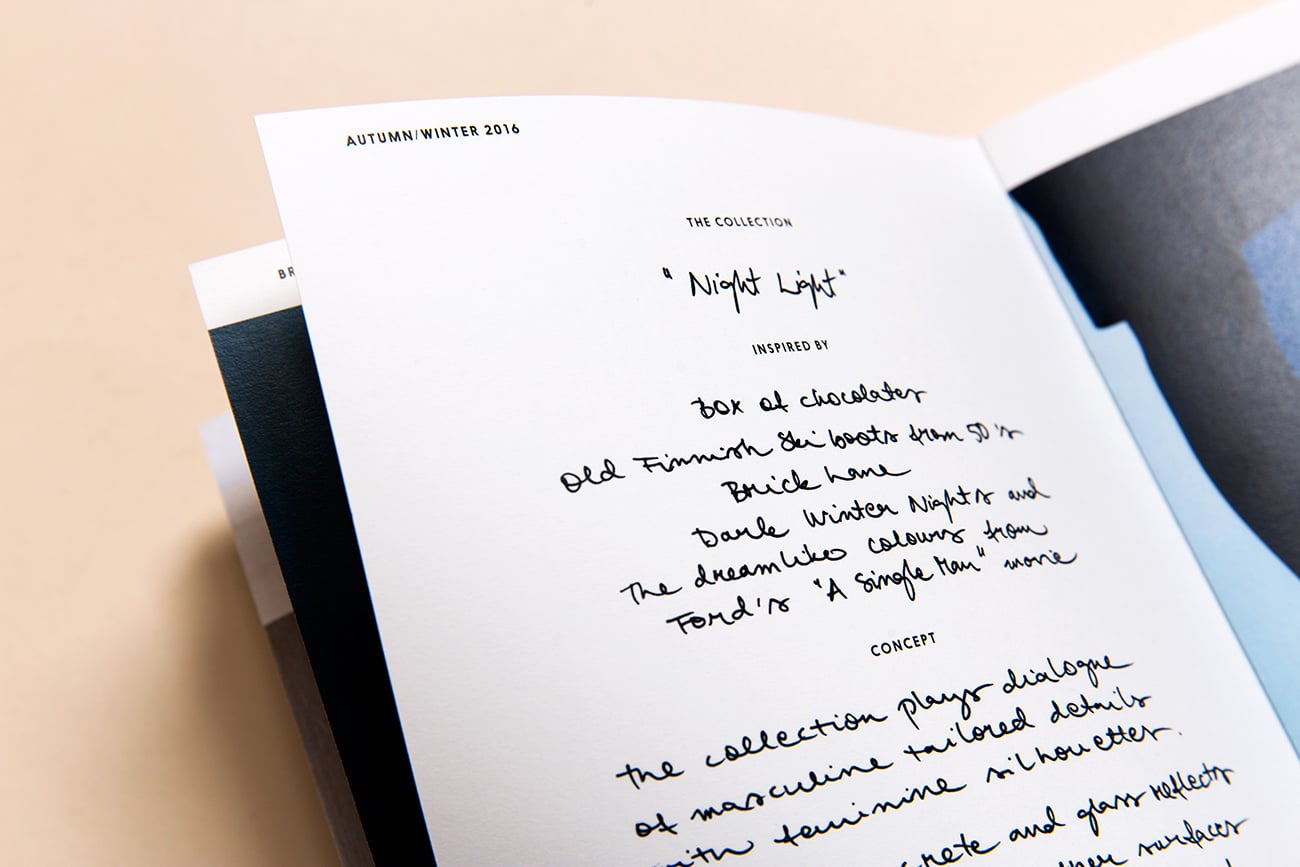 AUTUMN/WINTER 2016
BR
THE COLLECTION
"Night Light"
INSPIRED BY
Box of chocolates
Old Finnish Ski boots from 50's
Brick Lane
Dark Winter Nights and
The dreamlike colours from
Ford's "A Single Man" movie
CONCEPT
the collection plays dialogue
of masculine tailored details
with feminine silhouettes.
and glass reflects
surfaces